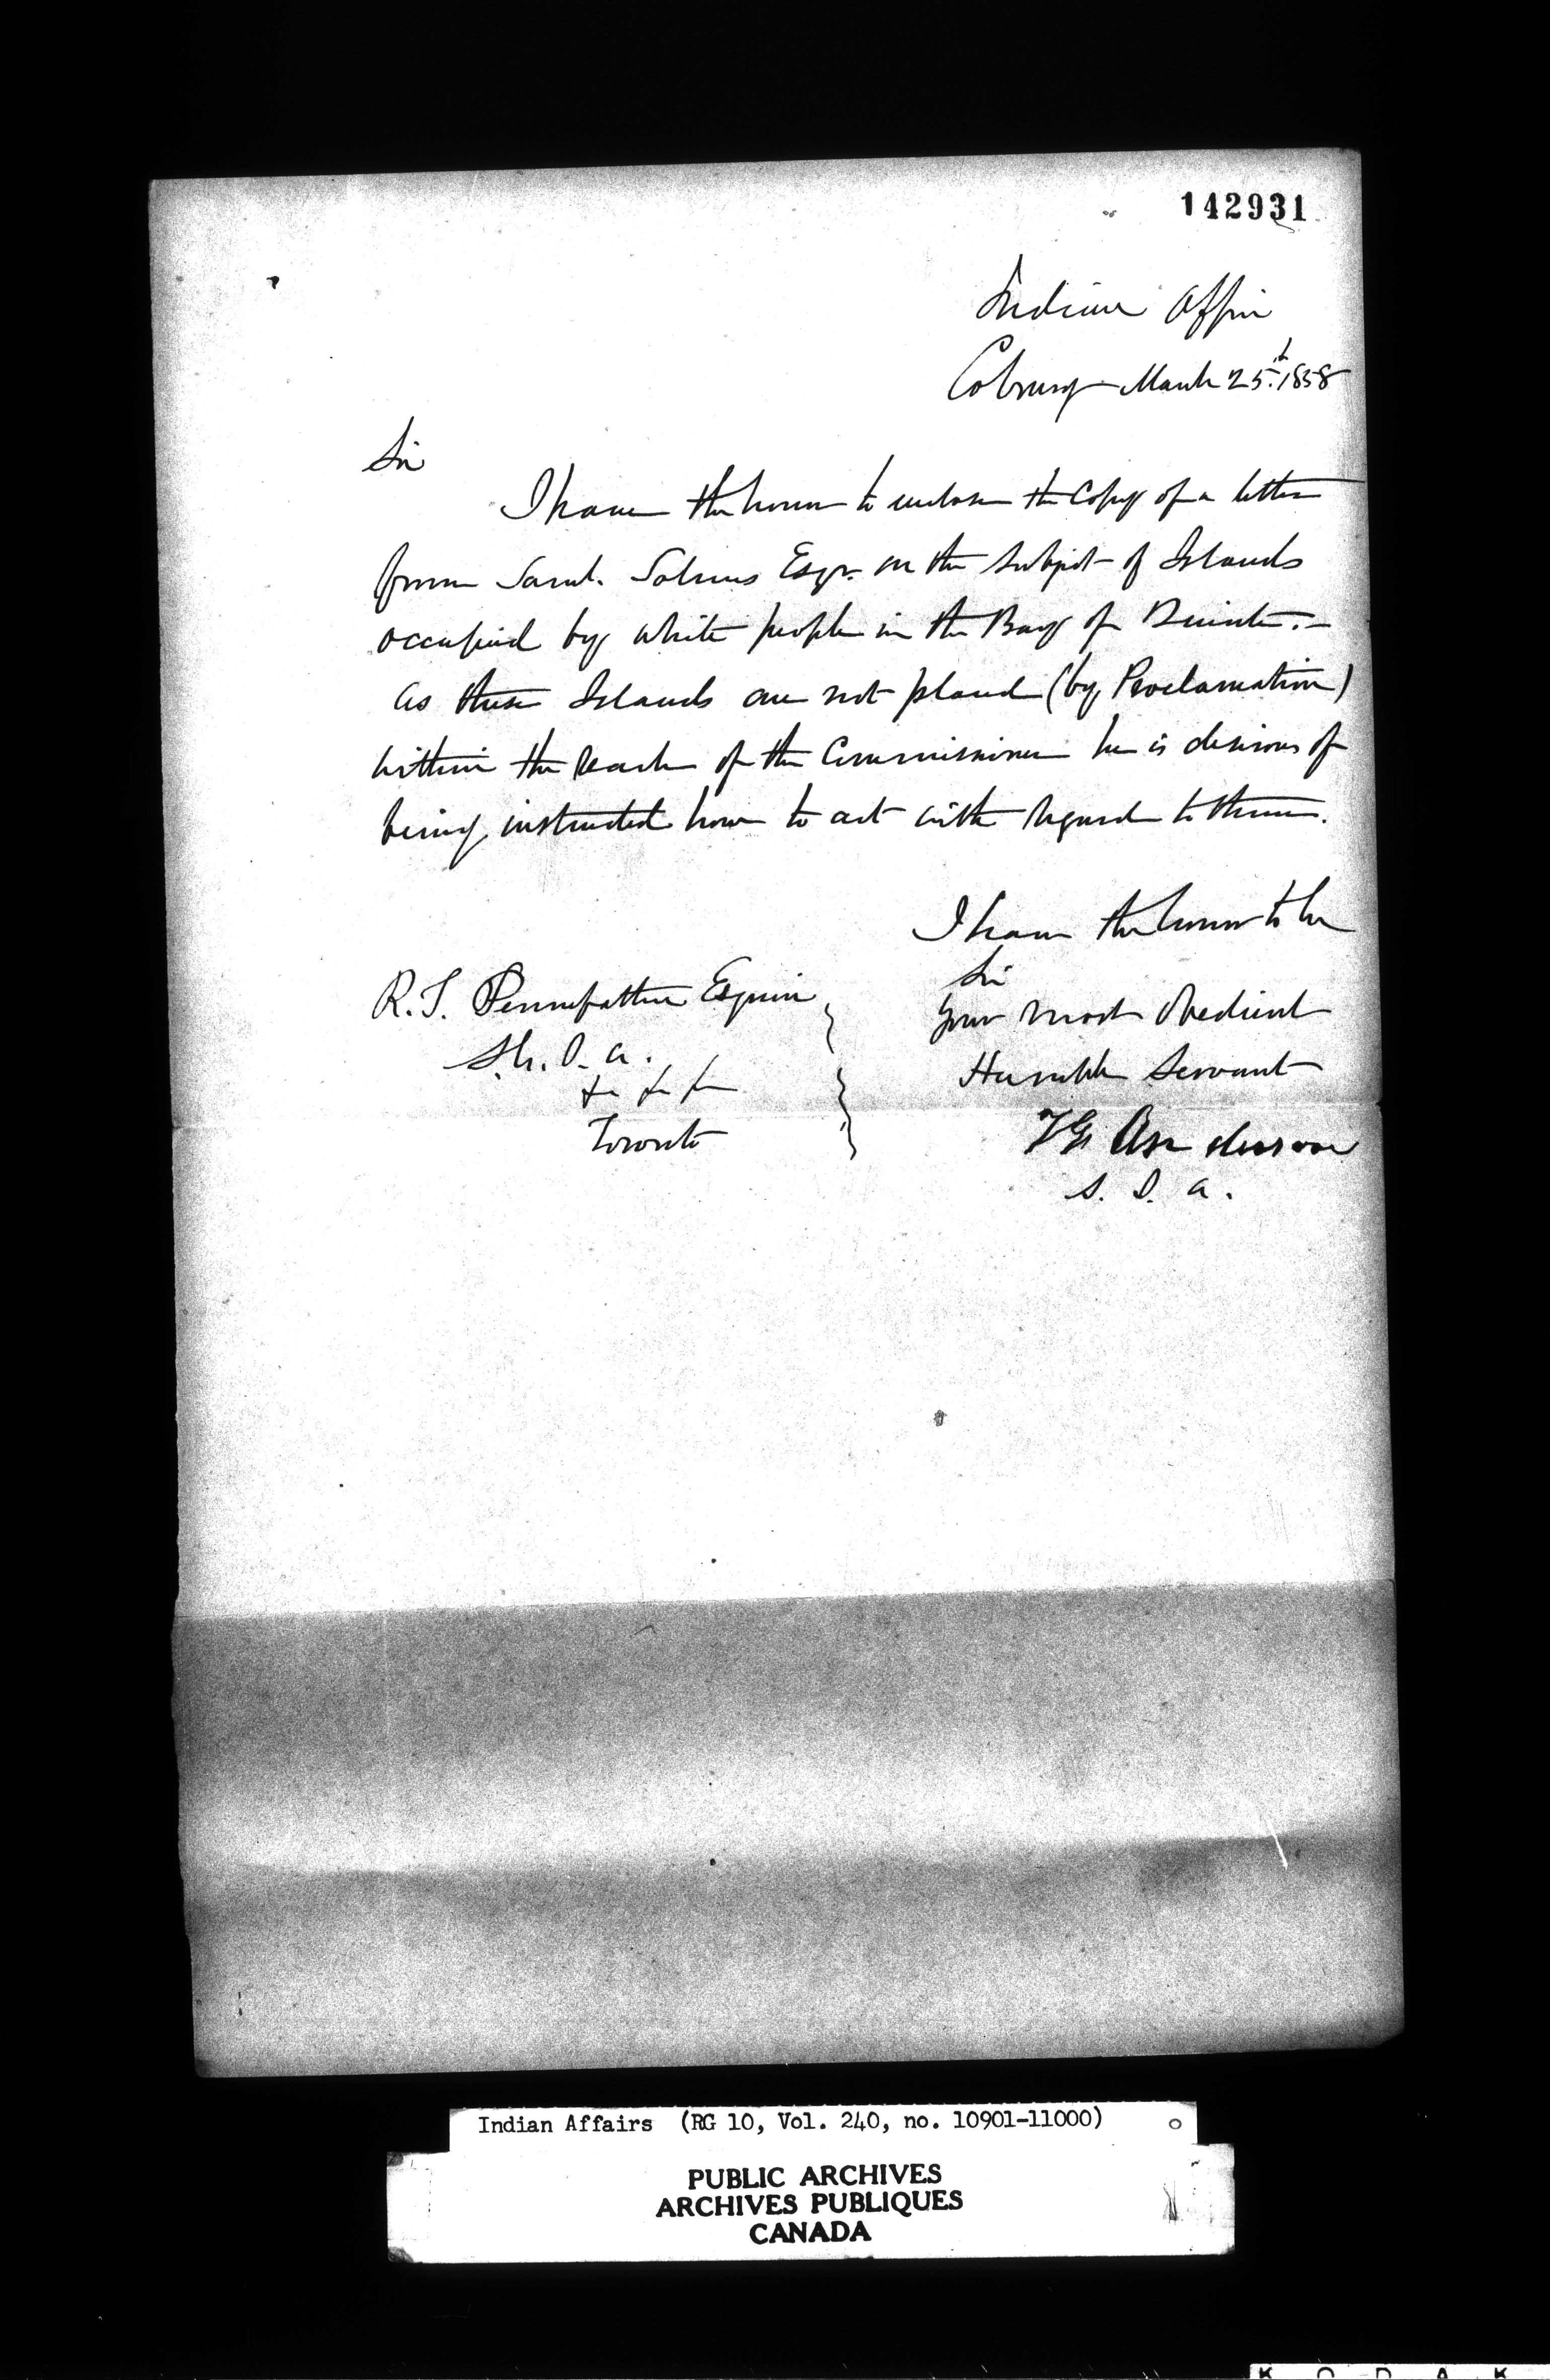 142931
Indian Office
Cobourg March 25th 1858
Sir
I have the honor to enclose the Copy of a letter
from Saml. Solmes Esqr. on the subject of Islands
occupied by white people in the Bay of Quinte. –
As these Islands are not placed (by Proclamation)
within the reach of the Commissioner he is desirous of
being instructed how to act with regard to them.
I have the honor to be
Sir
Your most Obedient
Humble Servant
T G Anderson
S. I. A.
R. T. Pennefather Esquire
S. G. I. A.
&c &c &c
Toronto
Indian Affairs (RG 10, Vol. 240, no. 10901-11000)
PUBLIC ARCHIVES
ARCHIVES PUBLIQUES
CANADA
K O D A K